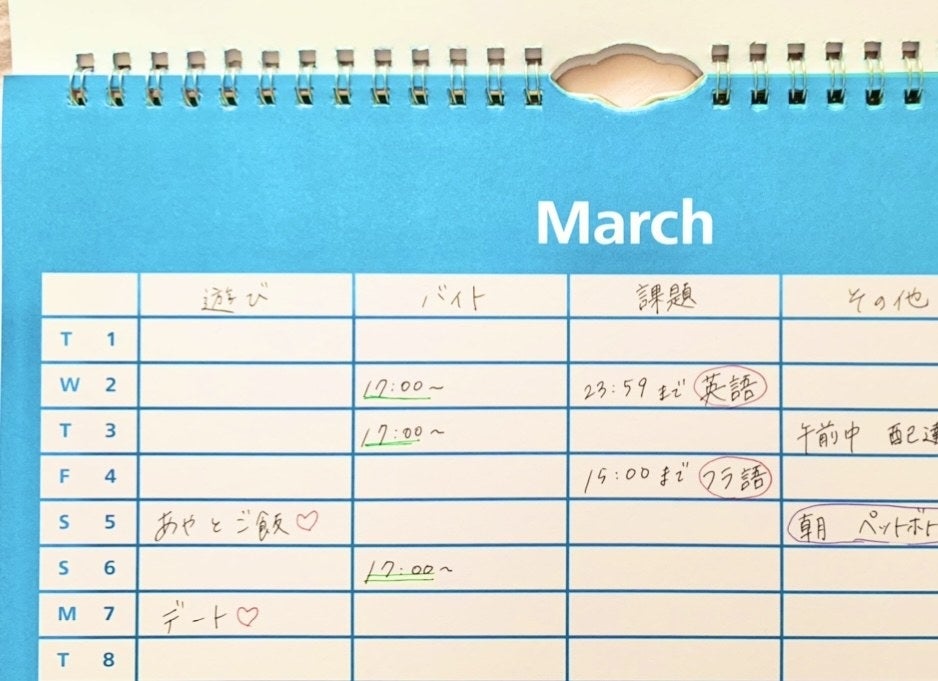 March
遊び バイト 課題 その他
T 1
W 2 17:00~ 23:59 まで 英語
T 3 17:00~ 午前中 配達
F 4 15:00 まで フラ語
S 5 あやとご飯♡ 朝 ペットボト
S 6 17:00~
M 7 デート♡
T 8